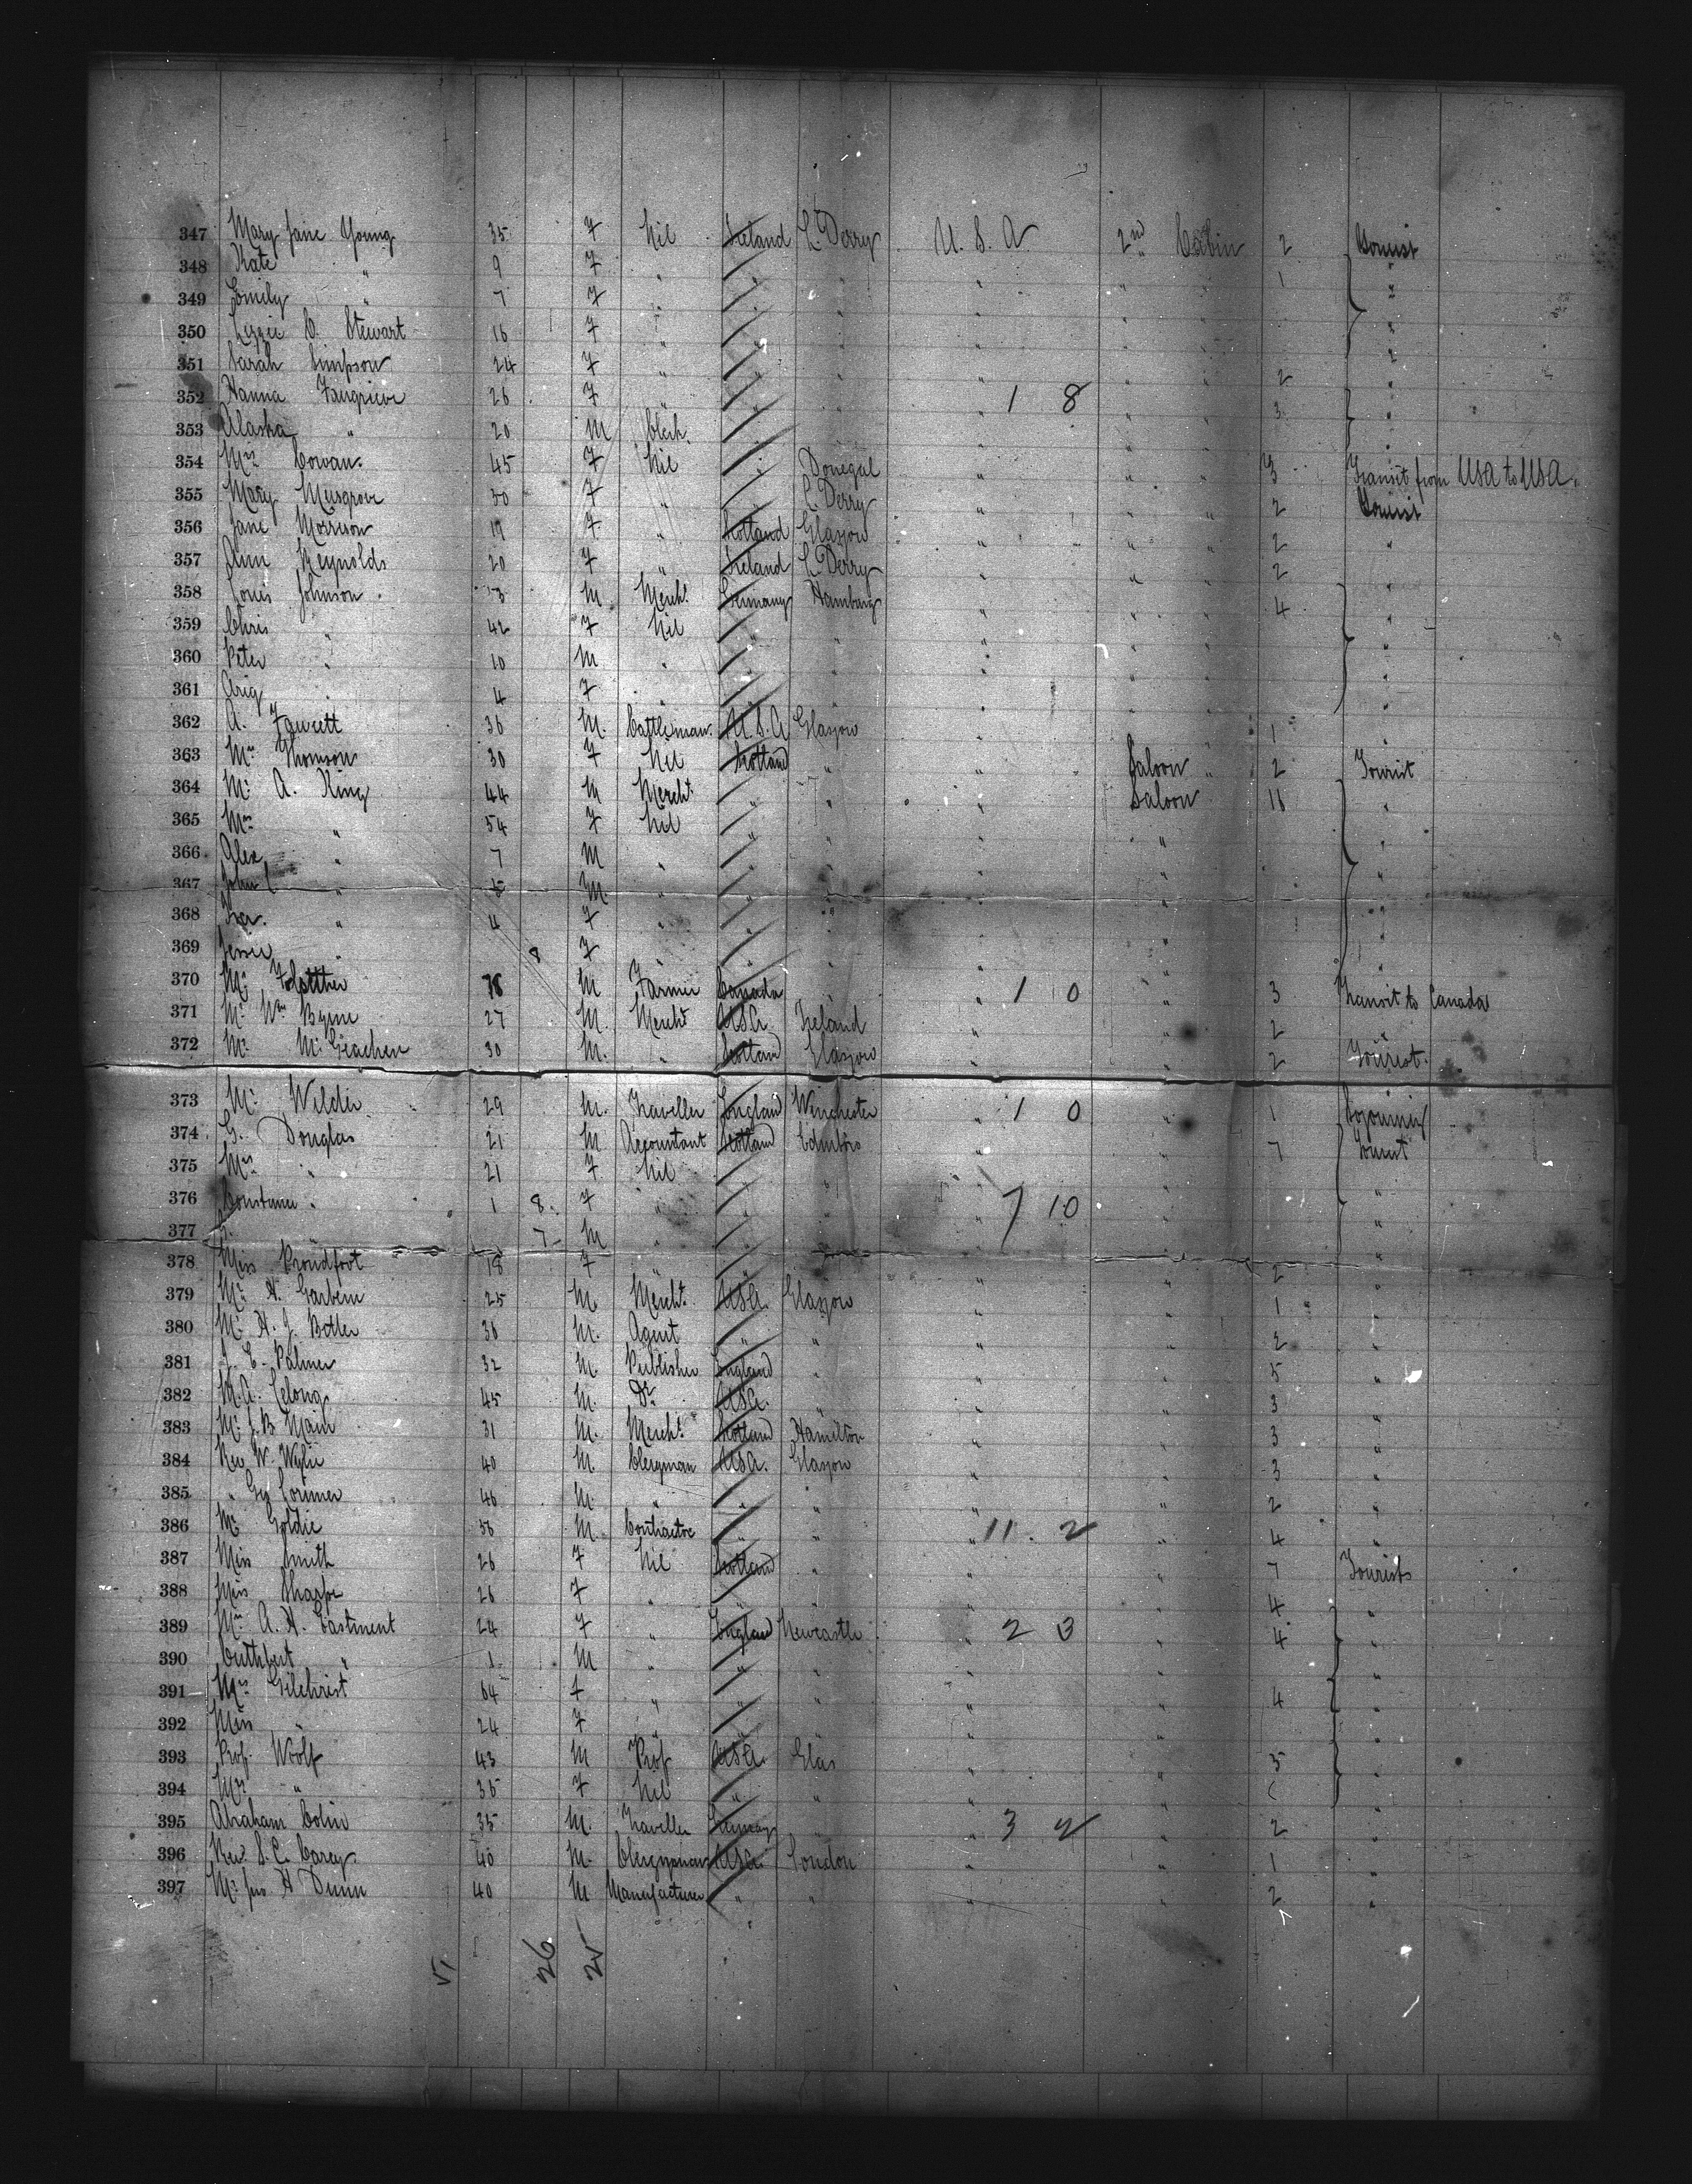 347 Mary Jane Young 35 F Nil Ireland L. Derry U. S. A 2nd Cabin 2 Tourist
348 Kate " 9 F " " " " " " 1 "
349 Emily " 7 F " " " " " " "
350 Lizzie C. Stewart 16 F " " " " " " "
351 Sarah Simpson 24 F " " " " " " 2 "
352 Hanna 26 F " " " " 1 8 " " 3 "
353 Alaska " 20 M Clerk " " " " " "
354 Mrs Cowan 45 F Nil " Donegal " " " 3 Transit from USA to USA.
355 Mary Musgrove 30 F " " L. Derry " " " 2 Tourist
356 Jane Morrison 19 F " Scotland Glasgow " " " 2 "
357 Ann Reynolds 20 F " Ireland L. Derry " " " 2 "
358 Louis Johnson M Mercht Germany Hamburg " " " 4 "
359 Chris " 42 F Nil " " " " " "
360 Peter " 10 M " " " " " " "
361 " 4 F " " " " " " "
362 A. Fawcett 36 M. Cattleman U. S. A Glasgow " " " 1 "
363 Mrs Thomson 30 F Nil Scotland " " Saloon " 2 Tourist
364 Mr A. King 44 M Mercht " " " Saloon 16 "
365 Mrs " 34 F Nil " " " " "
366 Alex " 7 M " " " " " "
367 John " M. " " " " " "
368 " 4 F " " " " " "
369 Jessie " 8 F " " " " " "
370 Mr M Farmer Canada " " 1 0 " 3 Transit to Canada
371 Mr Wm Byrne 27 M. Mercht USA Ireland " " 2 "
372 Mr McGeachen 30 M. " Scotland Glasgow " " 2 Tourist.
373 Mr Wilder 29 M. Traveller England Winchester " 1 0 " 1
374 G. Douglas 21 M Accountant Scotland Edinbro " " 7 Tourist
375 Mrs " 21 F Nil " " " " "
376 Constance " 1 8 F " " " " 7 10 " "
377 7 M " " " " " "
378 Miss Proudfoot 18 F " " " " " 2 "
379 Mr H. 25 M Mercht. USA. Glasgow " " 1 "
380 Mr H. J. Botler 36 M. Agent " " " " 2 "
381 J. E. Palmer 32 M Publisher England " " " 5 "
382 M. A. 45 M. Dr USA. " " " 3 "
383 Mr J. B Main 31 M. Mercht. Scotland Hamilton " " 3 "
384 Rev W. Wylie 40 M. Clergman USA. Glasgow " " 3 "
385 " Geo Lorimer 46 M. " " " " " 2 "
386 Mr Goldie 36 M. Contractor " " " 11. 2 " 4 "
387 Miss Smith 26 F Nil Scotland " " " 7 Tourists
388 Miss Sharpe 26 F " " " " " 4 "
389 Mrs A. H. Eastment 24 F " England Newcastle " 2 3 " 4 "
390 Cuthbert " 1 M " " " " " "
391 Mrs Gilchrist 64 f " " " " " 4 "
392 Miss " 24 F " " " " " "
393 Prof. Woolf 43 M Prof USA. Glas " " 5 "
394 Mrs " 36 F Nil " " " " "
395 Abraham Colin 35 M. Traveller Germany " " 3 2 " 2 "
396 Rev. S. E. Carey 40 M. Clergyman USA London " " 1 "
397 Mr Jno H Dunn 40 M Manufacturer " " " " 2 "
51 26 25